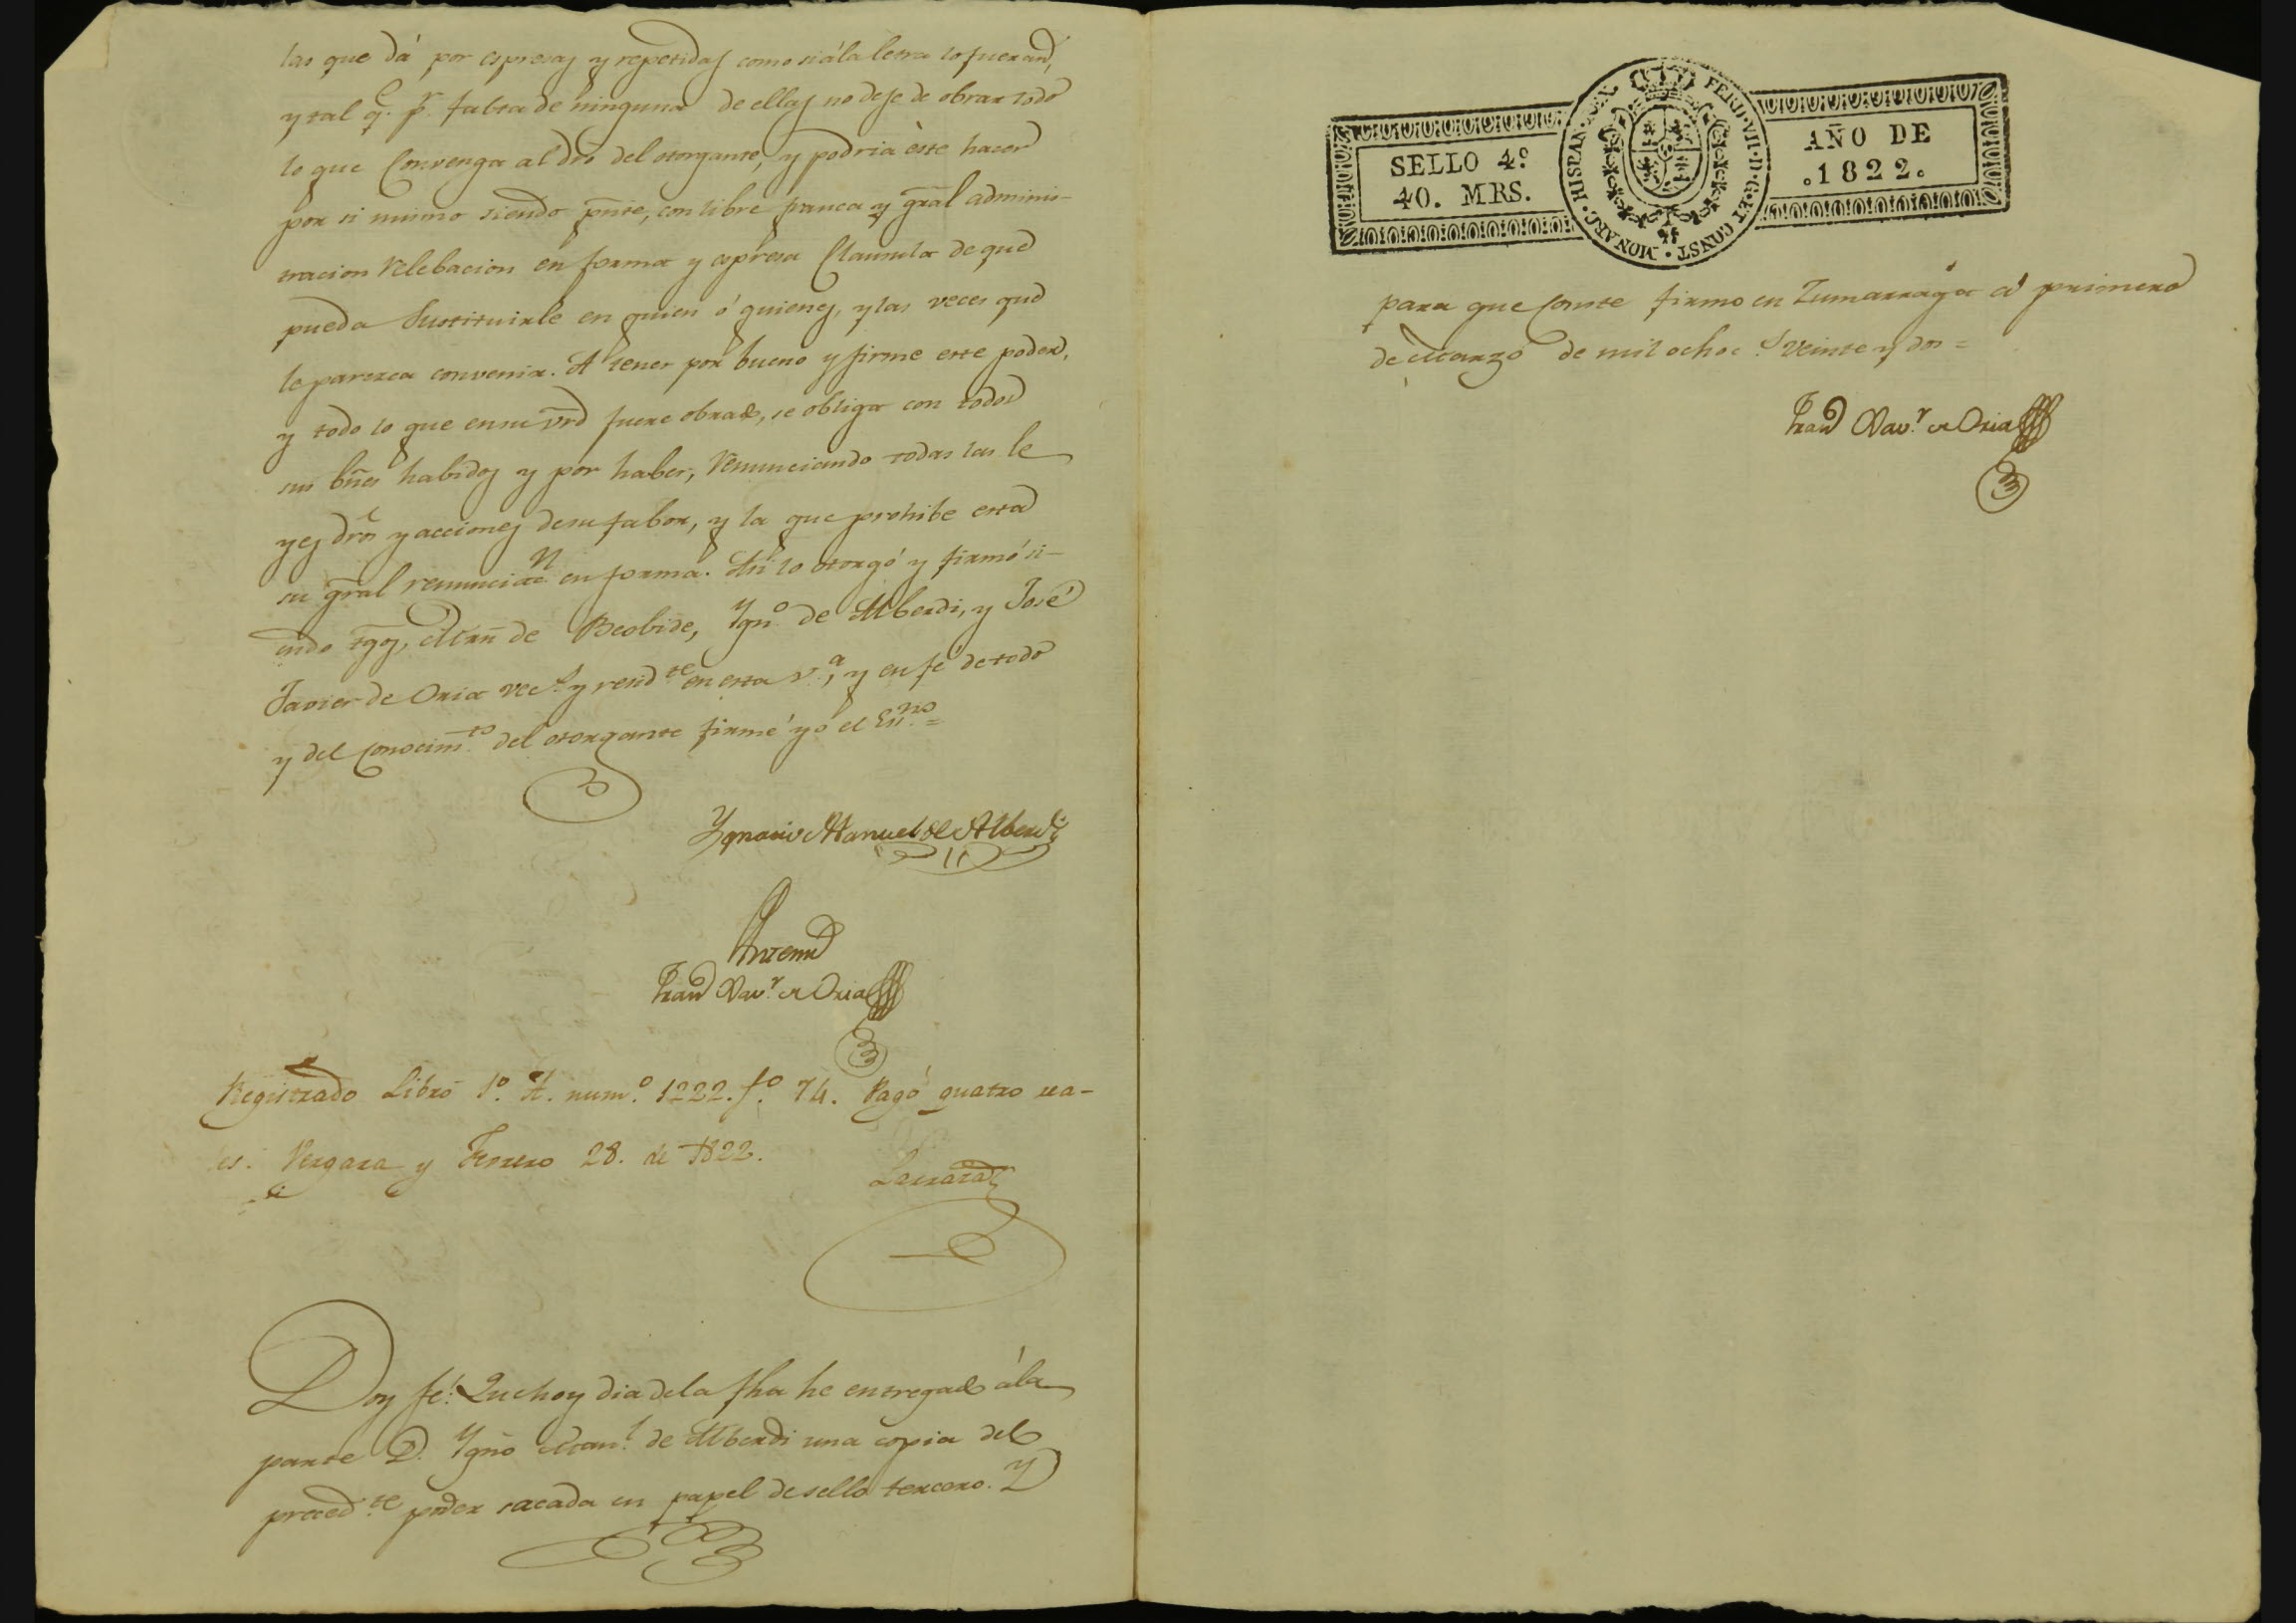 las que dá por espresas y repetidas como si á la letra lo fueran,
y tal q.e pr. falta de ninguna de ellas no deje de obrar todo
lo que Convenga al dro del otorgante, y podria este hacer
por si mismo siendo pnte, con libre franca y gral adminis-
tracion relebacion en forma y espresa Clausula de que
pueda Sustituirle en quien ó quienes, y las veces que
le parezca convenir. A tener por bueno y firme este poder,
y todo lo que en su vrd fuere obrado, se obliga con todos
sus bñes habidos y por haber, renunciando todas las le
yes dros y acciones de su fabor, y la que prohibe esta
su gral renunciacn en forma. Asi lo otorgó y firmó si-
endo tgos, Mrñ de Beobide, Ygno de Alberdi, y José
Javier de Oria vecs y resid.tes en esta v.a, y en fé de todo
y del Conocim.to del otorgante firmé yó el Esno =
Ygnacio Manuel de Alberdi
Antemi
Franco Xav.r de Oria
Registrado Libro 1.o A. num.o 1222. f.o 74. Pagó quatro rea-
les. Vergara y Febrero 28. de 1822.
Doy fé: Que hoy dia de la fha he entregado á la
parte D. Ygno Man.l de Alberdi una copia del
preced.te poder sacada en papel de sello tercero. Y
SELLO 4º
40. MRS.
FERD·VII·D·G·ET CONST·MONARC·HISPAN·REX·
AÑO DE
.1822.
para que Conste firmo en Zumarraga á primero
de Marzo de mil ochoc.s veinte y dos =
Franco Xav.r de Oria